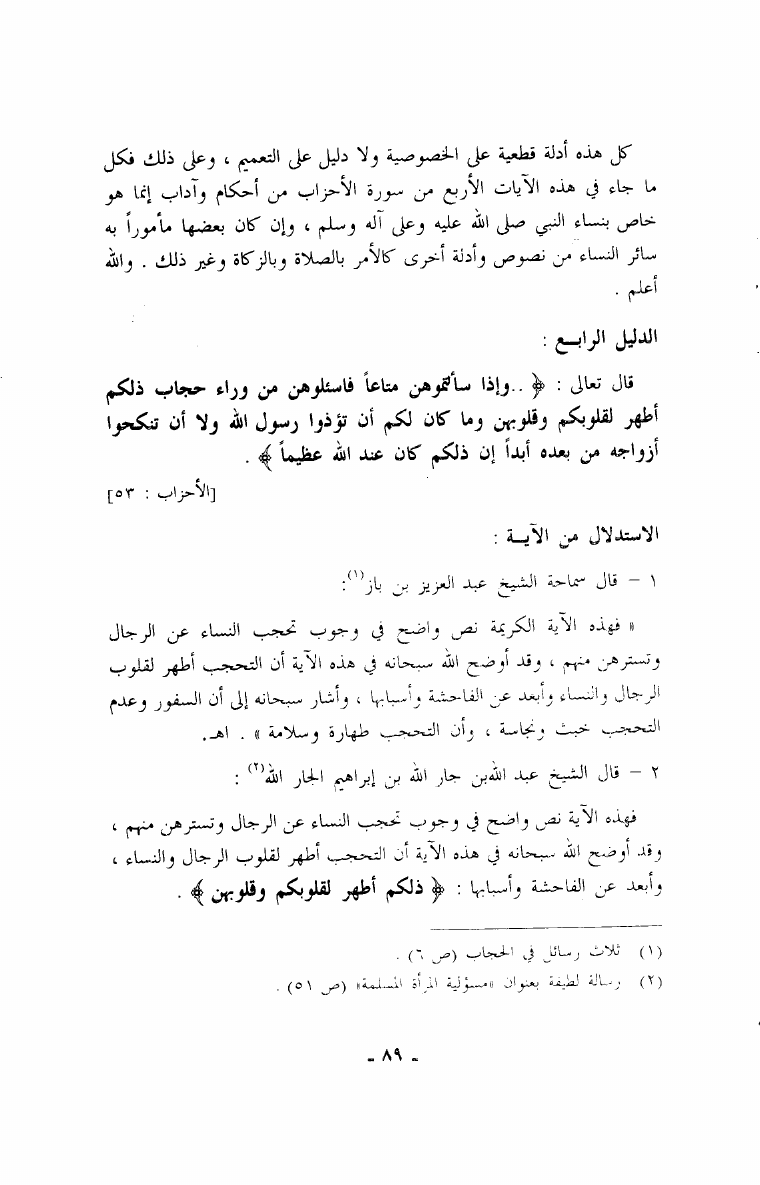 كل هذه أدلة قطعية على الخصوصية ولا دليل على التعميم ، وعلى ذلك فكل
ما جاء في هذه الآيات الأربع من سورة الأحزاب من أحكام وآداب إنما هو
خاص بنساء النبي صلى الله عليه وعلى آله وسلم ، وإن كان بعضها مأموراً به
سائر النساء من نصوص وأدلة أخرى كالأمر بالصلاة وبالزكاة وغير ذلك . والله
أعلم .
الدليل الرابـع :
قال تعالى : ﴿ ..وإذا سألتموهن متاعاً فاسئلوهن من وراء حجاب ذلكم
أطهر لقلوبكم وقلوبهن وما كان لكم أن تؤذوا رسول الله ولا أن تنكحوا
أزواجه من بعده أبداً إن ذلكم كان عند الله عظيماً ﴾ .
[الأحزاب : ٥٣]
الاستدلال من الآيـة :
١ – قال سماحة الشيخ عبد العزيز بن باز(١):
« فهذه الآية الكريمة نص واضح في وجوب تحجب النساء عن الرجال
وتسترهن منهم ، وقد أوضح الله سبحانه في هذه الآية أن التحجب أطهر لقلوب
الرجال والنساء وأبعد عن الفاحشة وأسبابها ، وأشار سبحانه إلى أن السفور وعدم
التحجب خبث ونجاسة ، وأن التحجب طهارة وسلامة » . اهـ.
٢ – قال الشيخ عبد اللهبن جار الله بن إبراهيم الجار الله(٢) :
فهذه الآية نص واضح في وجوب تحجب النساء عن الرجال وتسترهن منهم ،
وقد أوضح الله سبحانه في هذه الآية أن التحجب أطهر لقلوب الرجال والنساء ،
وأبعد عن الفاحشة وأسبابها : ﴿ ذلكم أطهر لقلوبكم وقلوبهن ﴾ .
(١) ثلاث رسائل في الحجاب (ص ٦) .
(٢) رسالة لطيفة بعنوان «مسؤلية المرأة المسلمة» (ص ٥١) .
- ٨٩ -